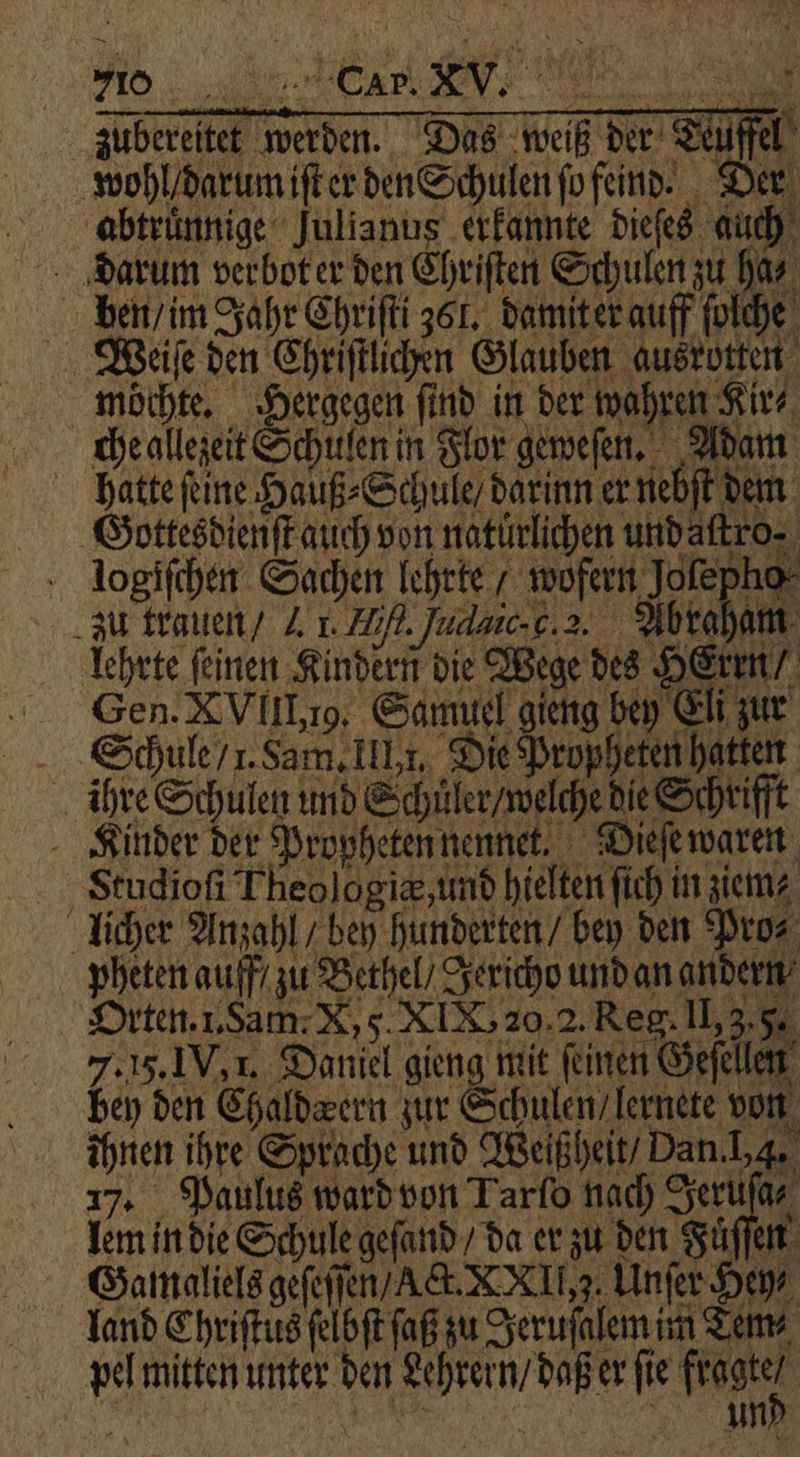 710 CAP. XV.
zubereitet werden. Das weiß der Teuffel
wohl/darum iſt er den Schulen ſo feind. Der
abtrůnnige Julianus erkannte dieſes auch
darum verbot er den Chriſten Schulen zu ha⸗
ben/im Jahr Chriſti 361. damit er auff ſolche
Weiſe den Chriſtlichen Glauben ausrotten
mőchte. Hergegen ſind in der wahren Kir⸗
che allezeit Schulen in Flor geweſen. Adam
hatte ſeine Hauß⸗Schule/darinn er nebſt dem
Gottesdienſt auch von natůrlichen und aſtro-
logiſchen Sachen lehrte / wofern Joſepho
zu trauen/ l. 1. Hiſt. Judaic. c. 2. Abraham
lehrte ſeinen Kindern die Wege des HErrn/
Gen. XVIII,19. Samuel gieng bey Eli zur
Schule/1. Sam. III,1. Die Propheten hatten
ihre Schulen und Schůler/welche die Schrifft
Kinder der Propheten nennet. Dieſe waren
Studioſi Theologiæ,und hielten ſich in ziem⸗
licher Anzahl / bey hunderten/ bey den Pro⸗
pheten auff/ zu Bethel/ Jericho und an andern
Orten. 1. Sam. X, 5. XIX, 20. 2. Reg. II, 3. 5.
7. 15. IV, 1. Daniel gieng mit ſeinen Geſellen
bey den Chaldæern zur Schulen/lernete von
ihnen ihre Sprache und Weißheit/ Dan. I, 4.
17. Paulus ward von Tarſo nach Jeruſa⸗
lem in die Schule geſand / da er zu den Fůſſen
Gamaliels geſeſſen/Act. XXII,3. Unſer Hey⸗
land Chriſtus ſelbſt ſaß zu Jeruſalem im Tem⸗
pel mitten unter den Lehrern/daß er ſie fragte/
und